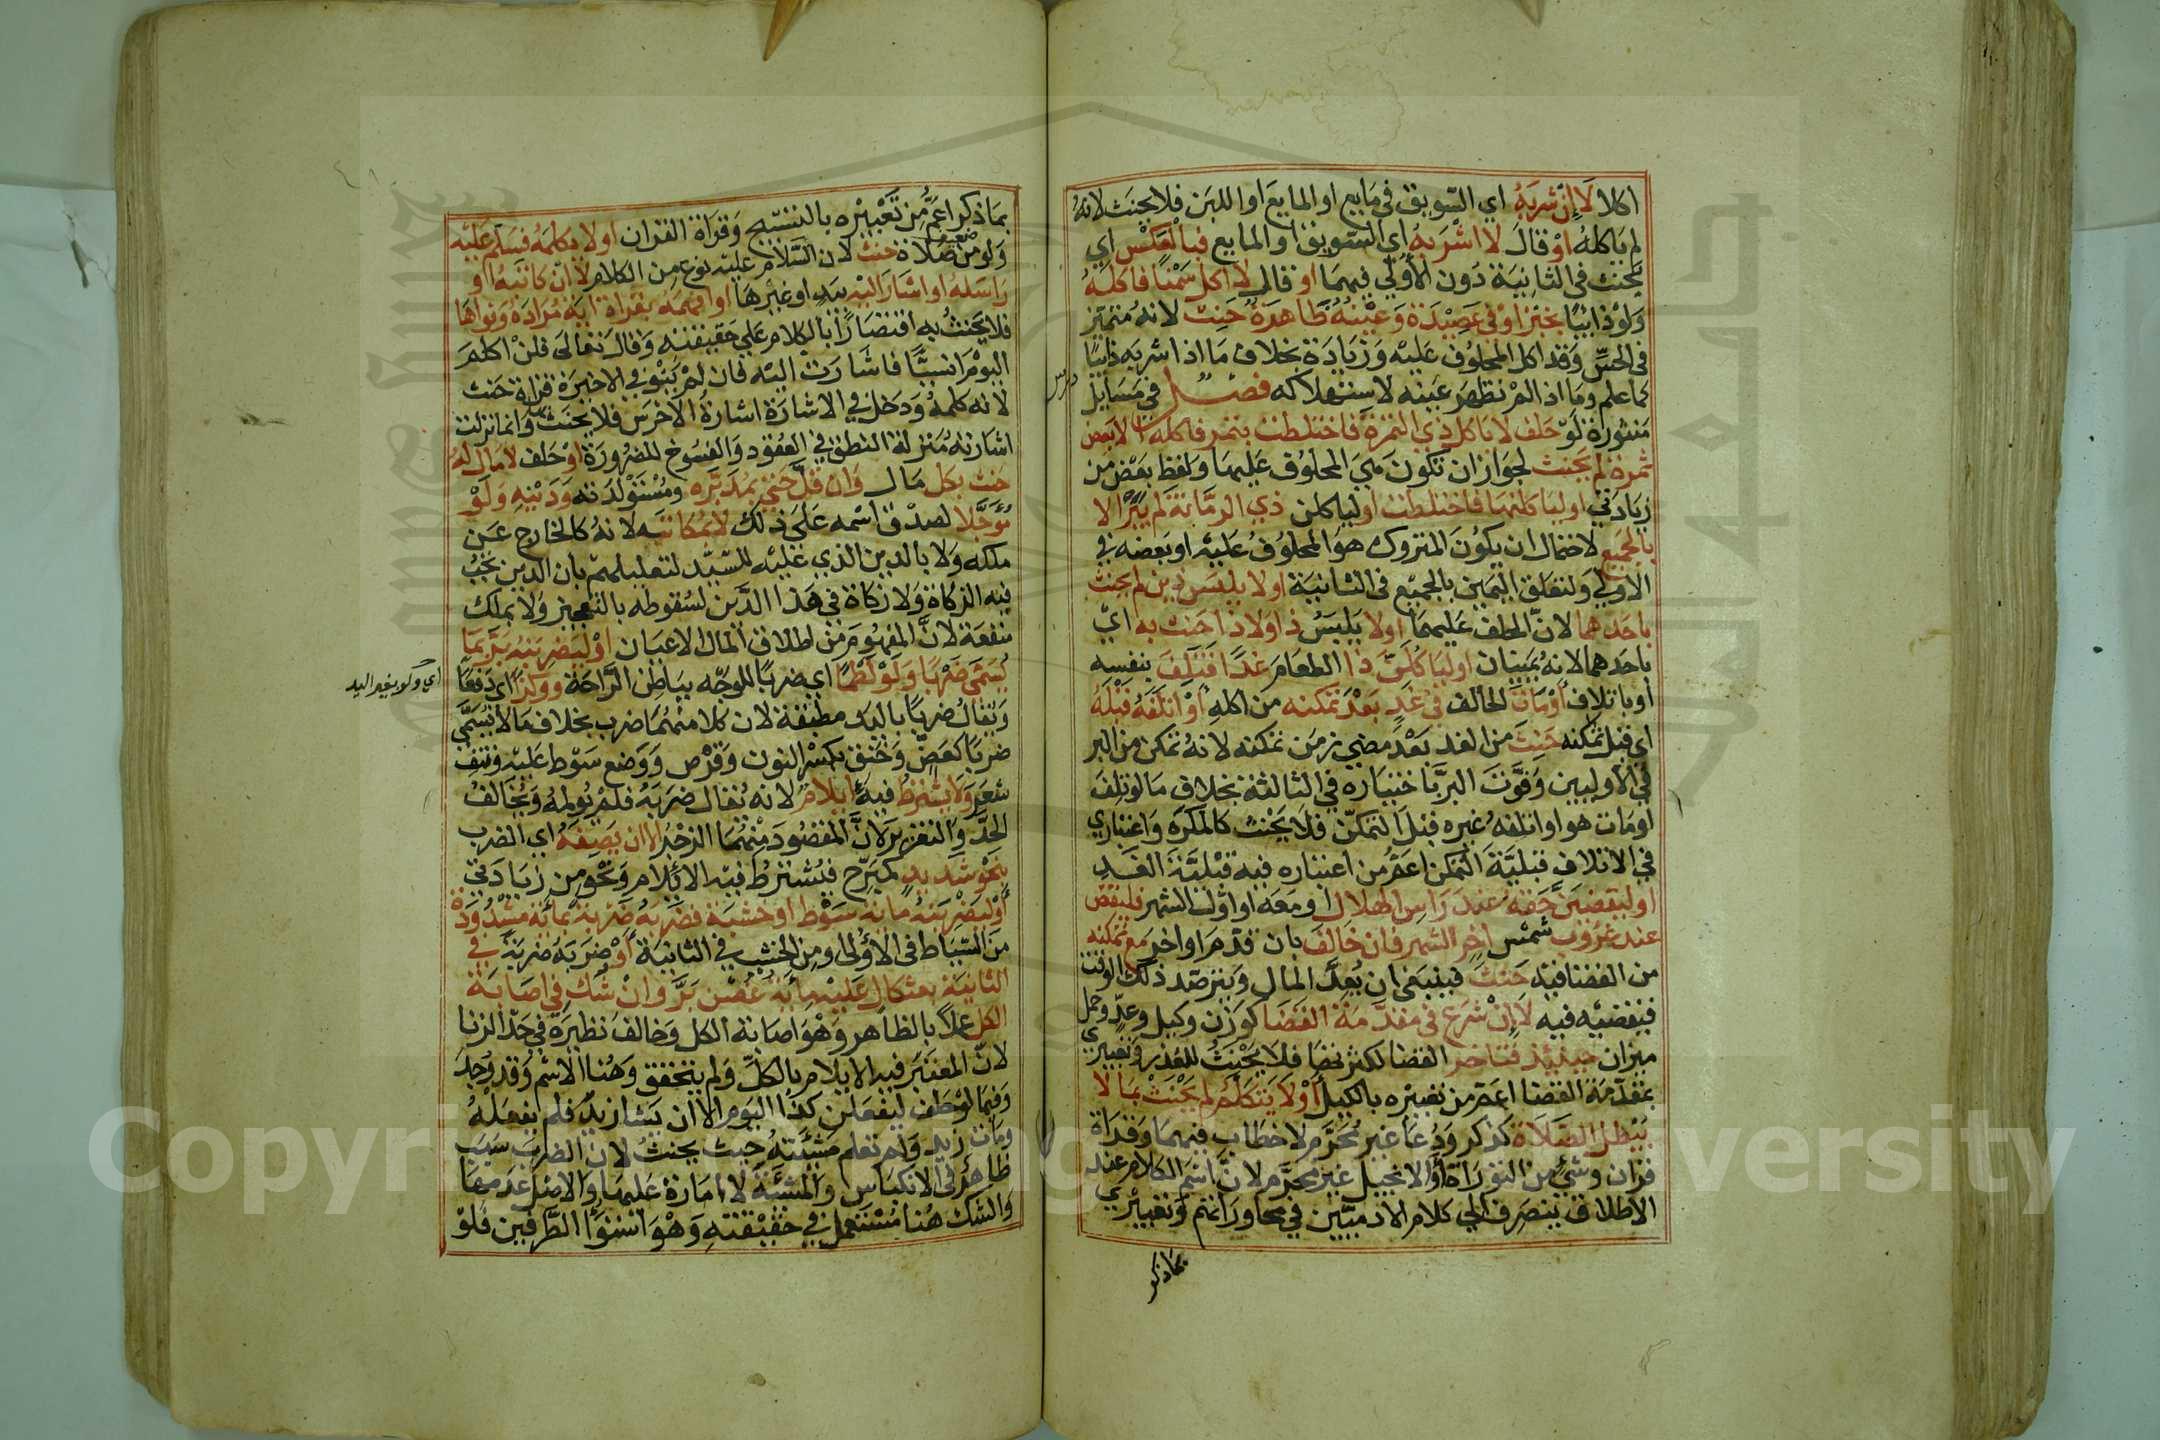 اكلا لا ان شربه اي السويق في مايع او المايع او اللبن فلا يحنث لانه
لم ياكله او قال لا اشربه اي السويق او المايع فبالعكس اي
يحنث في الثانية دون الاولي فيهما او قال لا اكل سمنا فاكله
ولو ذايبا بخبز او في عصيدة وعينه ظاهرة حنث لانه متميز
في الحس وقد اكل المحلوف عليه وزيادة بخلاف ما اذا شربه ذايبا
كما علم وما اذا لم تظهر عينه لاستهلاكه فصل في مسايل
منثورة لو حلف لا ياكل ذي التمرة فاختلطت بتمر فاكله الا بعض
تمرة لم يحنث لجواز ان تكون هي المحلوف عليها ولفظ بعض من
زيادتي او لياكلنها فاختلطت او لياكلن ذي الرمانة لم يبر الا
بالجميع لاحتمال ان يكون المتروك هو المحلوف عليه او بعضه في
الاولي ولتعلق اليمين بالجميع في الثانية او لا يلبس ذين لم يحنث
باحدهما لان الحلف عليهما او لا يلبس ذا ولا ذا حنث به اي
باحدهما لانه يمينان او لياكلن ذا الطعام غدا فتلف بنفسه
او باتلاف او مات الحالف في غد بعد تمكنه من اكله او اتلفه قبله
اي قبل تمكنه حنث من الغد بعد مضي زمن تمكنه لانه تمكن من البر
في الاوليين وفوت البر باختياره في الثالثة بخلاف ما لو تلف
او مات هو او اتلفه غيره قبل التمكن فلا يحنث كالمكره واعتباري
في الاتلاف قبلية التمكن اعم من اعتباره فيه قبلية الغد
او ليقضين حقه عند راس الهلال او معه او اول الشهر فليقض
عند غروب شمس اخر الشهر فان خالف بان قدم او اخر مع تمكنه
من القضا فيه حنث فينبغي ان يعد المال ويترصد ذلك الوقت
فيقضيه فيه لا ان شرع في مقدمة القضا كوزن وكيل وعد وحمل
ميزان حينيذ فتاخر القضا لكثرتها فلا يحنث للعذر وتعبيري
بمقدمة القضا اعم من تعبيره بالكيل او لا يتكلم لم يحنث بما لا
يبطل الصلاة كذكر ودعا غير محرم لا خطاب فيهما وقراة
قران وشي من التوراة او الانجيل غير محرم لان اسم الكلام عند
الاطلاق ينصرف الي كلام الادميين في محاوراتهم وتعبيري
بما ذكر
بما ذكر اعم من تعبيره بالتسبيح وقراة القران او لا يكلمه فسلم عليه
ولو من صلاة حنث لان السلام عليه نوع من الكلام لا ان كاتبه او
راسله او اشار اليه بيد او غيرها او افهمه بقراة اية مراده ونواها
فلا يحنث به اقتصارا بالكلام علي حقيقته وقال تعالى فلن اكلم
اليوم انسيا فاشارت اليه فان لم ينو في الاخيرة قراة حنث
لانه كلمه ودخل في الاشارة اشارة الاخرس فلا يحنث وانما نزلت
اشارته منزلة النطق في العقود والفسوخ للضرورة او حلف لا مال له
حنث بكل مال وان قل حتي بمدبره ومستولدته ودينه ولو
مؤجلا لصدق اسمه على ذلك لا بمكاتبه لانه كالخارج عن
ملكه ولا بالدين الذي عليه للسيد لتعليلهم بان الدين يجب
فيه الزكاة ولا زكاة في هذا الدين لسقوطه بالتعجيز ولا بملك
منفعة لان المفهوم من اطلاق المال الاعيان او ليضربنه بر بما
يسمى ضربا ولو لطما اي ضربا للوجه بباطن الراحة ووكزا اي دفعا
اي ولو بغير اليد
ويقال ضربا باليد مطبقة لان كلا منهما ضرب بخلاف ما لا يسمى
ضربا كعض وخنق بكسر النون وقرص ووضع سوط عليه ونتف
شعر ولا يشترط فيه ايلام لانه يقال ضربه فلم يولمه ويخالف
الحد والتعزير لان المقصود منهما الزجر الا ان يصفه اي الضرب
بنحو شديد كمبرح فيشترط فيه الايلام ونحو من زيادتي
او ليضربنه مائة سوط او خشبة فضربه ضربة بمائة مشدودة
من السياط في الاولى ومن الخشب في الثانية او ضربه ضربة في
الثانية بعثكال عليه مائة غصن بر وان شك في اصابة
الكل عملا بالظاهر وهو اصابة الكل وخالف نظيره في حد الزنا
لان المعتبر فيه الايلام بالكل ولم يتحقق وهنا الاسم وقد وجد
وفيما لو حلف ليفعلن كذا اليوم الا ان يشا زيد فلم يفعله
ومات زيد ولم تعلم مشئته حيث يحنث لان الضرب سبب
ظاهر في الانكباس والمشئة لا امارة عليها والاصل عدمها
والشك هنا مستعمل في حقيقته وهو استوا الطرفين فلو
Copyright © King Saud University